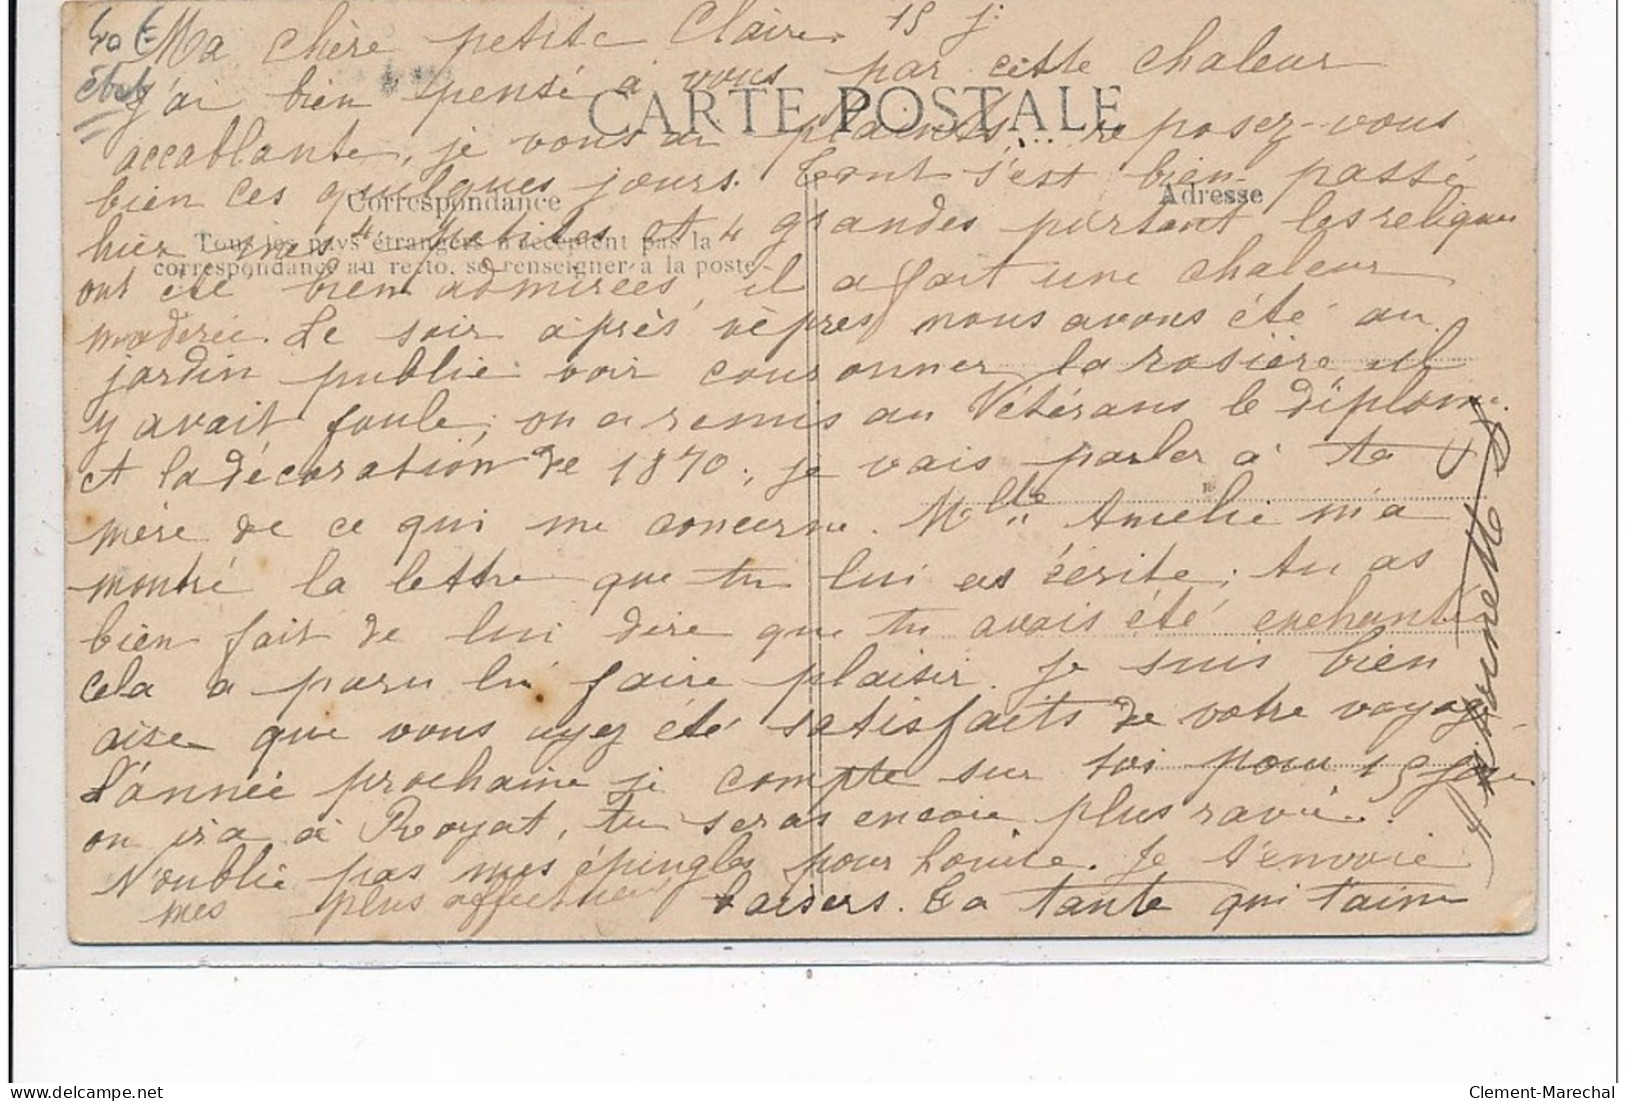 40 E
état
Ma chère petite Claire. 15 j.
j'ai bien pensé à vous par cette chaleur
CARTE POSTALE
accablante, je vous ai plaints... reposez-vous
bien ces quelques jours. Tout s'est bien passé
Correspondance
Adresse
hier mes 4 petites et 4 grandes portant les reliques
Tous les pays étrangers n'acceptent pas la
correspondance au recto, se renseigner à la poste
ont été bien admirées, il a fait une chaleur
modérée. Le soir après vêpres nous avons été au
jardin public voir couronner la rosière il
y avait foule, on a remis au Vétérans le diplôme
et la décoration de 1870; je vais parler à ta
mère de ce qui me concerne. Mlle Amélie m'a
montré la lettre que tu lui as écrite; tu as
bien fait de lui dire que tu avais été enchanté
cela a paru lui faire plaisir. Je suis bien
aise que vous ayez été satisfaits de votre voyage
l'année prochaine je compte sur toi pour 15 jours
on ira à Royat, tu seras encore plus ravie.
N'oublie pas mes épingles pour Louise. Je t'envoie
mes plus affectueux baisers. Ta tante qui t'aime
Antoinette
Clement-Marechal